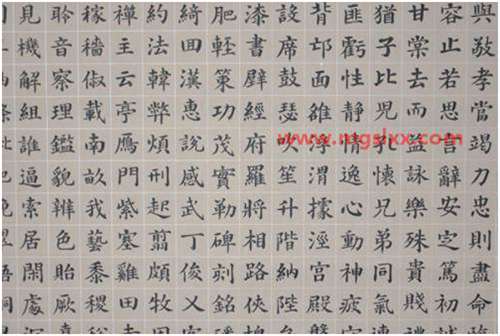 與敬孝當竭力忠則盡命
容止若思言辭安定篤初
甘棠去而益詠樂殊貴賤
猶子比兒孔懷兄弟同氣
匪虧性靜情逸心動神疲
背邙面雒浮渭據涇宮殿
設席鼓瑟吹笙升階納陛
漆書壁經府羅將相路俠
肥輕策功茂實勒碑刻銘
綺回漢惠說感武丁俊乂
約法韓弊煩刑起翦頗牧
禪主云亭鴈門紫塞雞田
稼穡俶載南畝我藝黍稷
聆音察理鑑貌辨色貽厥
見機解組誰逼索居閑處
www.mgslxx.com